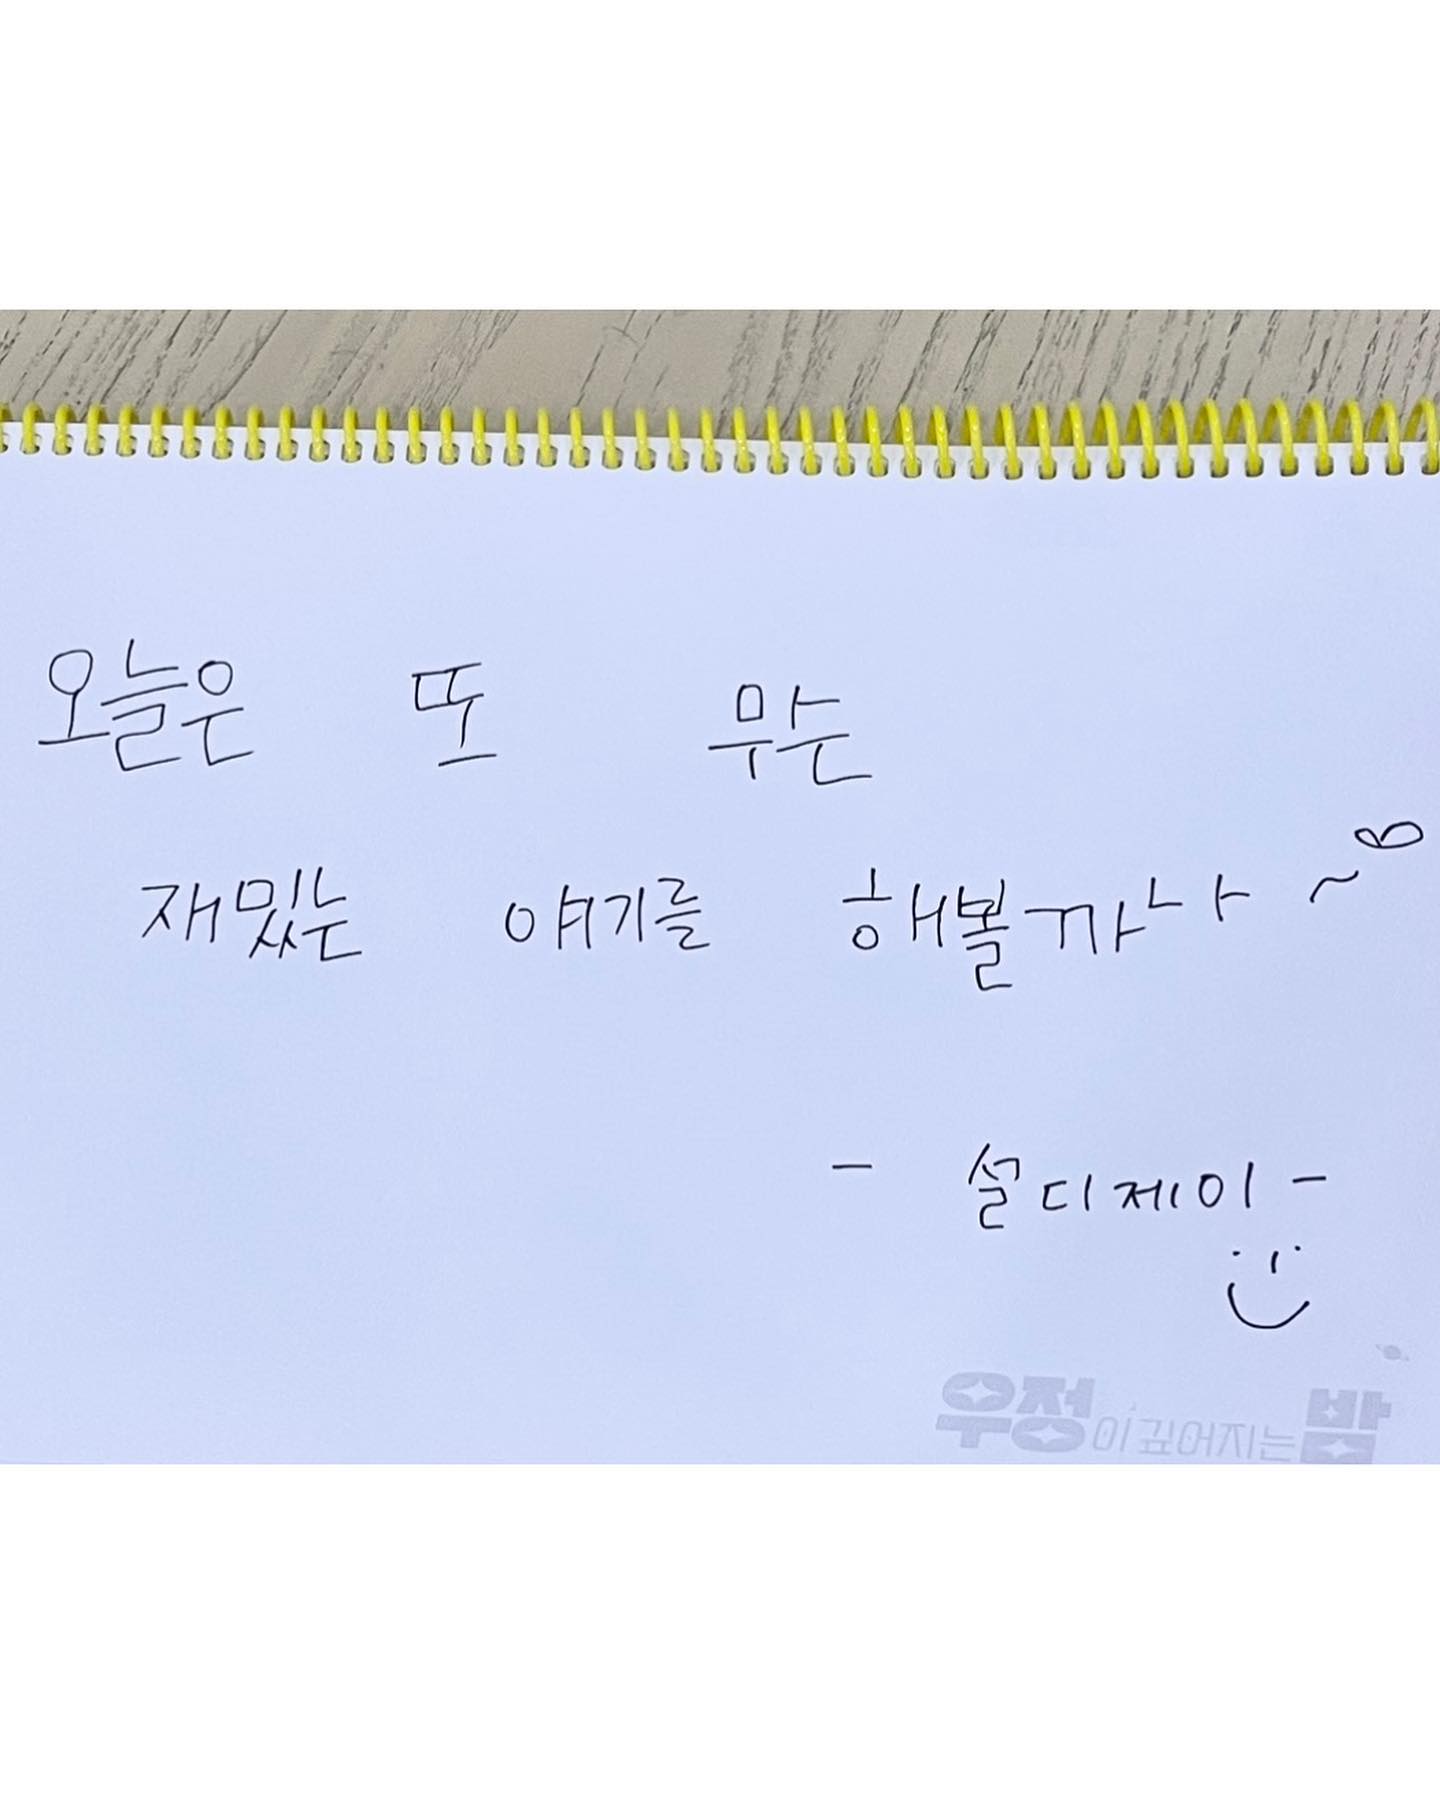 오늘은 또 무슨
재밌는 얘기를 해볼까나~♡
- 설디제이 -
우정이 깊어지는 밤